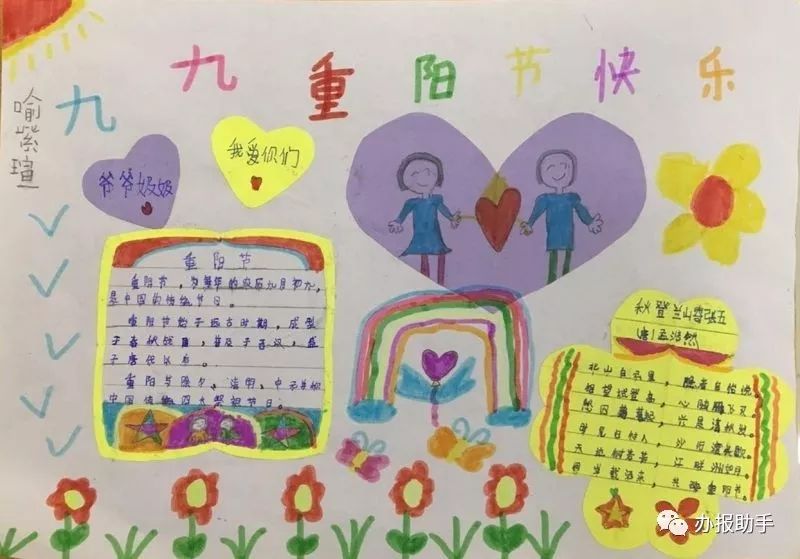 九九重阳节快乐
喻紫瑄
爷爷奶奶
我爱你们
重阳节
重阳节,为每年的农历九月初九,
是中国的传统节日。
重阳节始于远古时期,成型
于春秋战国,普及于西汉,
于唐代以后。
重阳与除夕、清明、中元
中国传统四大祭祖节日。
秋登兰山寄张五
(唐)孟浩然
北山白云里,隐者自怡悦。
相望试登高,心随雁飞灭。
愁因薄暮起,兴是清秋发。
时见归村人,沙行渡头歇。
天边树若荠,江畔洲如月。
何当载酒来,共醉重阳节。
办报助手